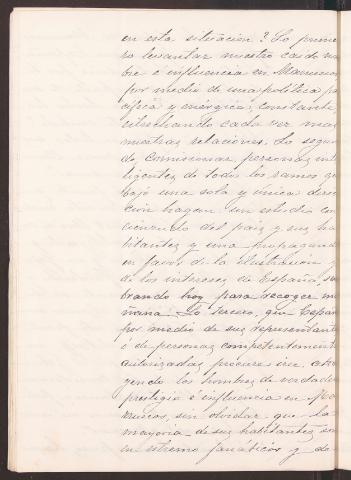 en esta situacion? Lo prime
ro levantar nuestro caido no
bre é influencia en Marruecos
por medio de una politica pa
cifica y enérgica, constante,
estrechando cada vez mas
nuestras relaciones. Lo segun
do, comisionar personas inte
ligentes de todos los ramos q
bajo una sola y única direc
cion hagan un estudio con
cienzudo del pais y sus ha
bitantes y una propaganda
en favor de la ilustracion y
de los intereses de España, sem
brando hoy para recoger ma
ñana. Lo tercero, que España
por medio de sus representant
ó de personas competentement
autorizadas procure irse atra
yendo los hombres de verdade
prestigio é influencia en Ma
rruecos, sin olvidar que la
mayoria de sus habitantes son
en estremo fanáticos y de